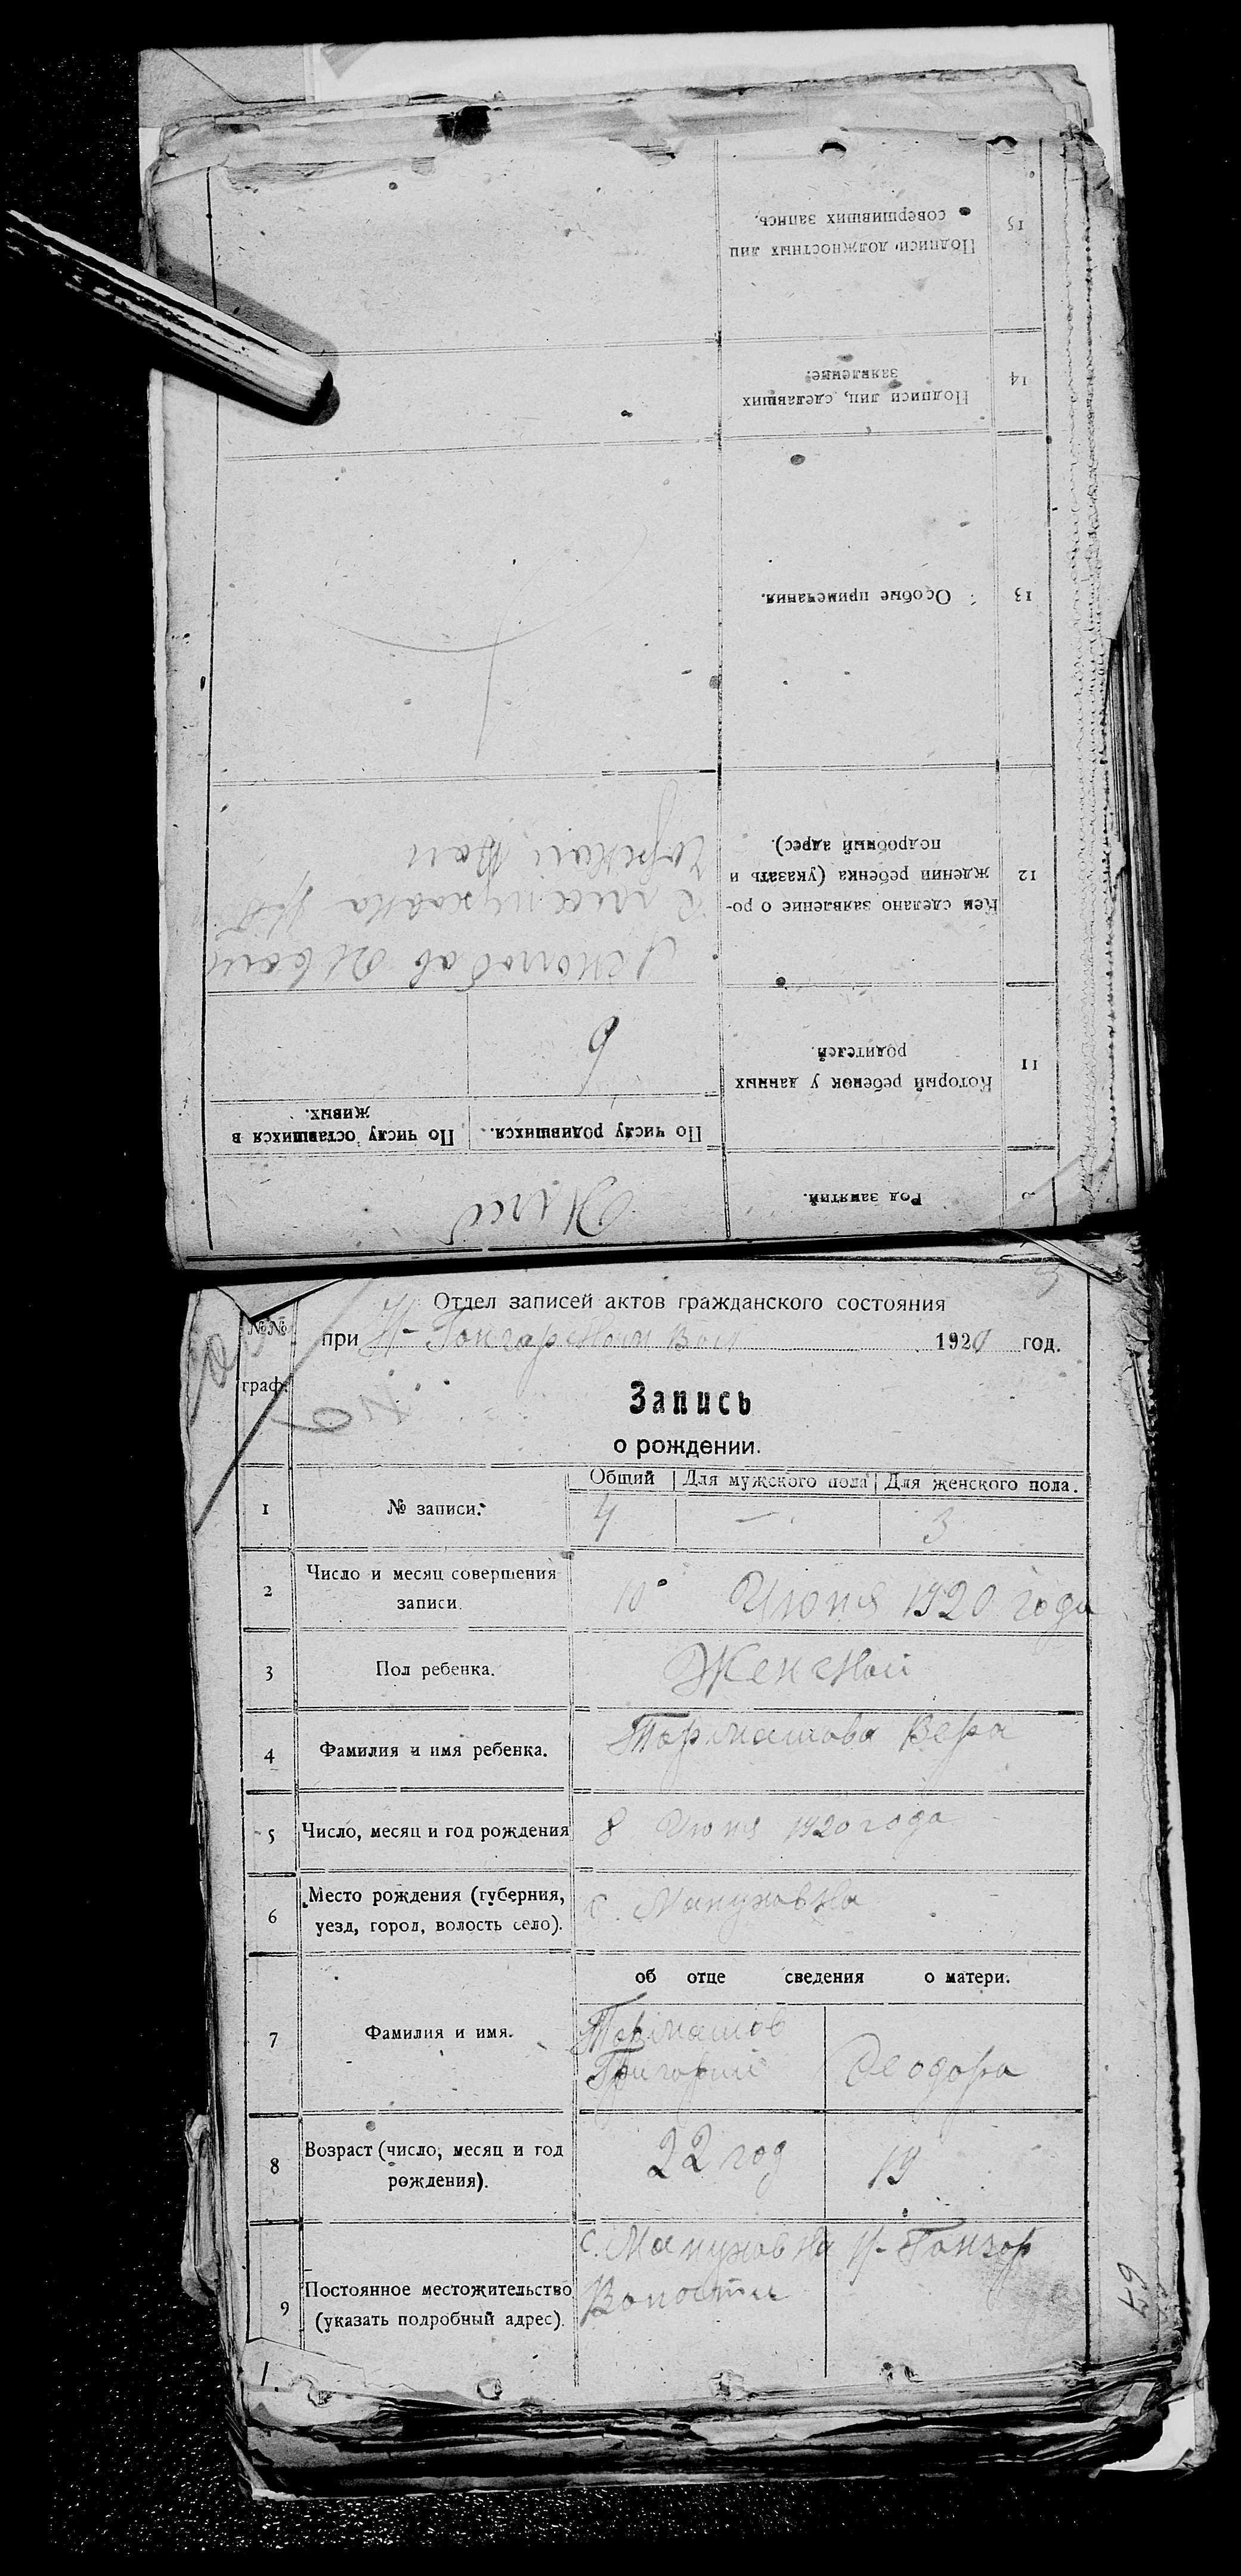 Род занятий.
Который ребенок у данных
родителей.
По числу родившихся.
По числу оставшихся в
живых.
6
11
12
Кем сделано заявление о ро-
ждении ребенка (указать и
подробный адрес).
13
Особые примечания.
14
Подписи лиц, сделавших
заявление.
15
Подписи должностных лиц
совершивших запись.
Отдел записей актов гражданского состояния
№№
граф.
при 1920 год.
Запись
о рождении.
Общий Для мужского пола Для женского пола.
1 № записи. 4 — 3
2 Число и месяц совершения
записи.
10 Июня 1920 года
3 Пол ребенка. Женской
4 Фамилия и имя ребенка. Тормашова Вера
5 Число, месяц и год рождения 8 Июня 1920 года
6 Место рождения (губерния,
уезд, город, волость село).
с. Мануховка
об отце сведения о матери.
7 Фамилия и имя.
Тормашов
Григорий
Феодора
8 Возраст (число, месяц и год
рождения).
22 год 19
9 Постоянное местожительство
(указать подробный адрес).
с. Мануховка
Волости
1.